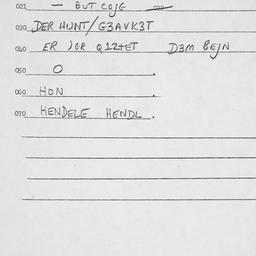 021 — BUT COJG —
030 DER HUNT/G3AVK3T
040 ER )GR Q1Z+ET D3M BEJN
050 O .
060 HON .
070 HENDELE HENDL .